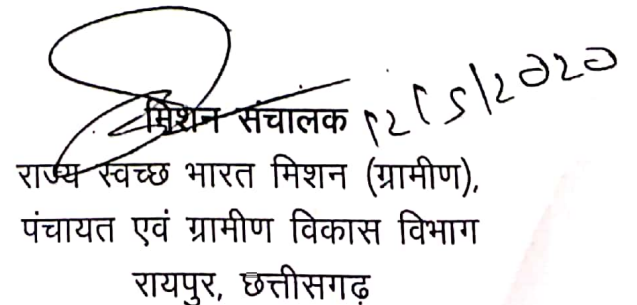 मिशन संचालक 12/5/2020
राज्य स्वच्छ भारत मिशन (ग्रामीण),
पंचायत एवं ग्रामीण विकास विभाग
रायपुर, छत्तीसगढ़